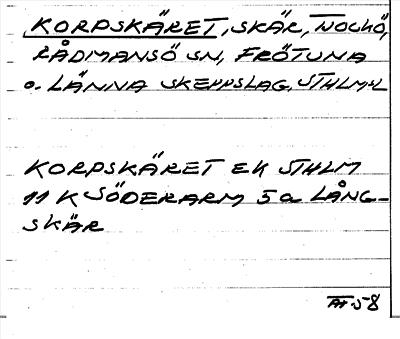 KORPSKÄRET, SKÄR, NOLHÖ,
RÅDMANSÖ SN, FRÖTUNA
o. LÄNNA SKEPPSLAG, STHLM-L
KORPSKÄRET EK STHLM
11 K SÖDERARM 5a LÅNG-
SKÄR
58